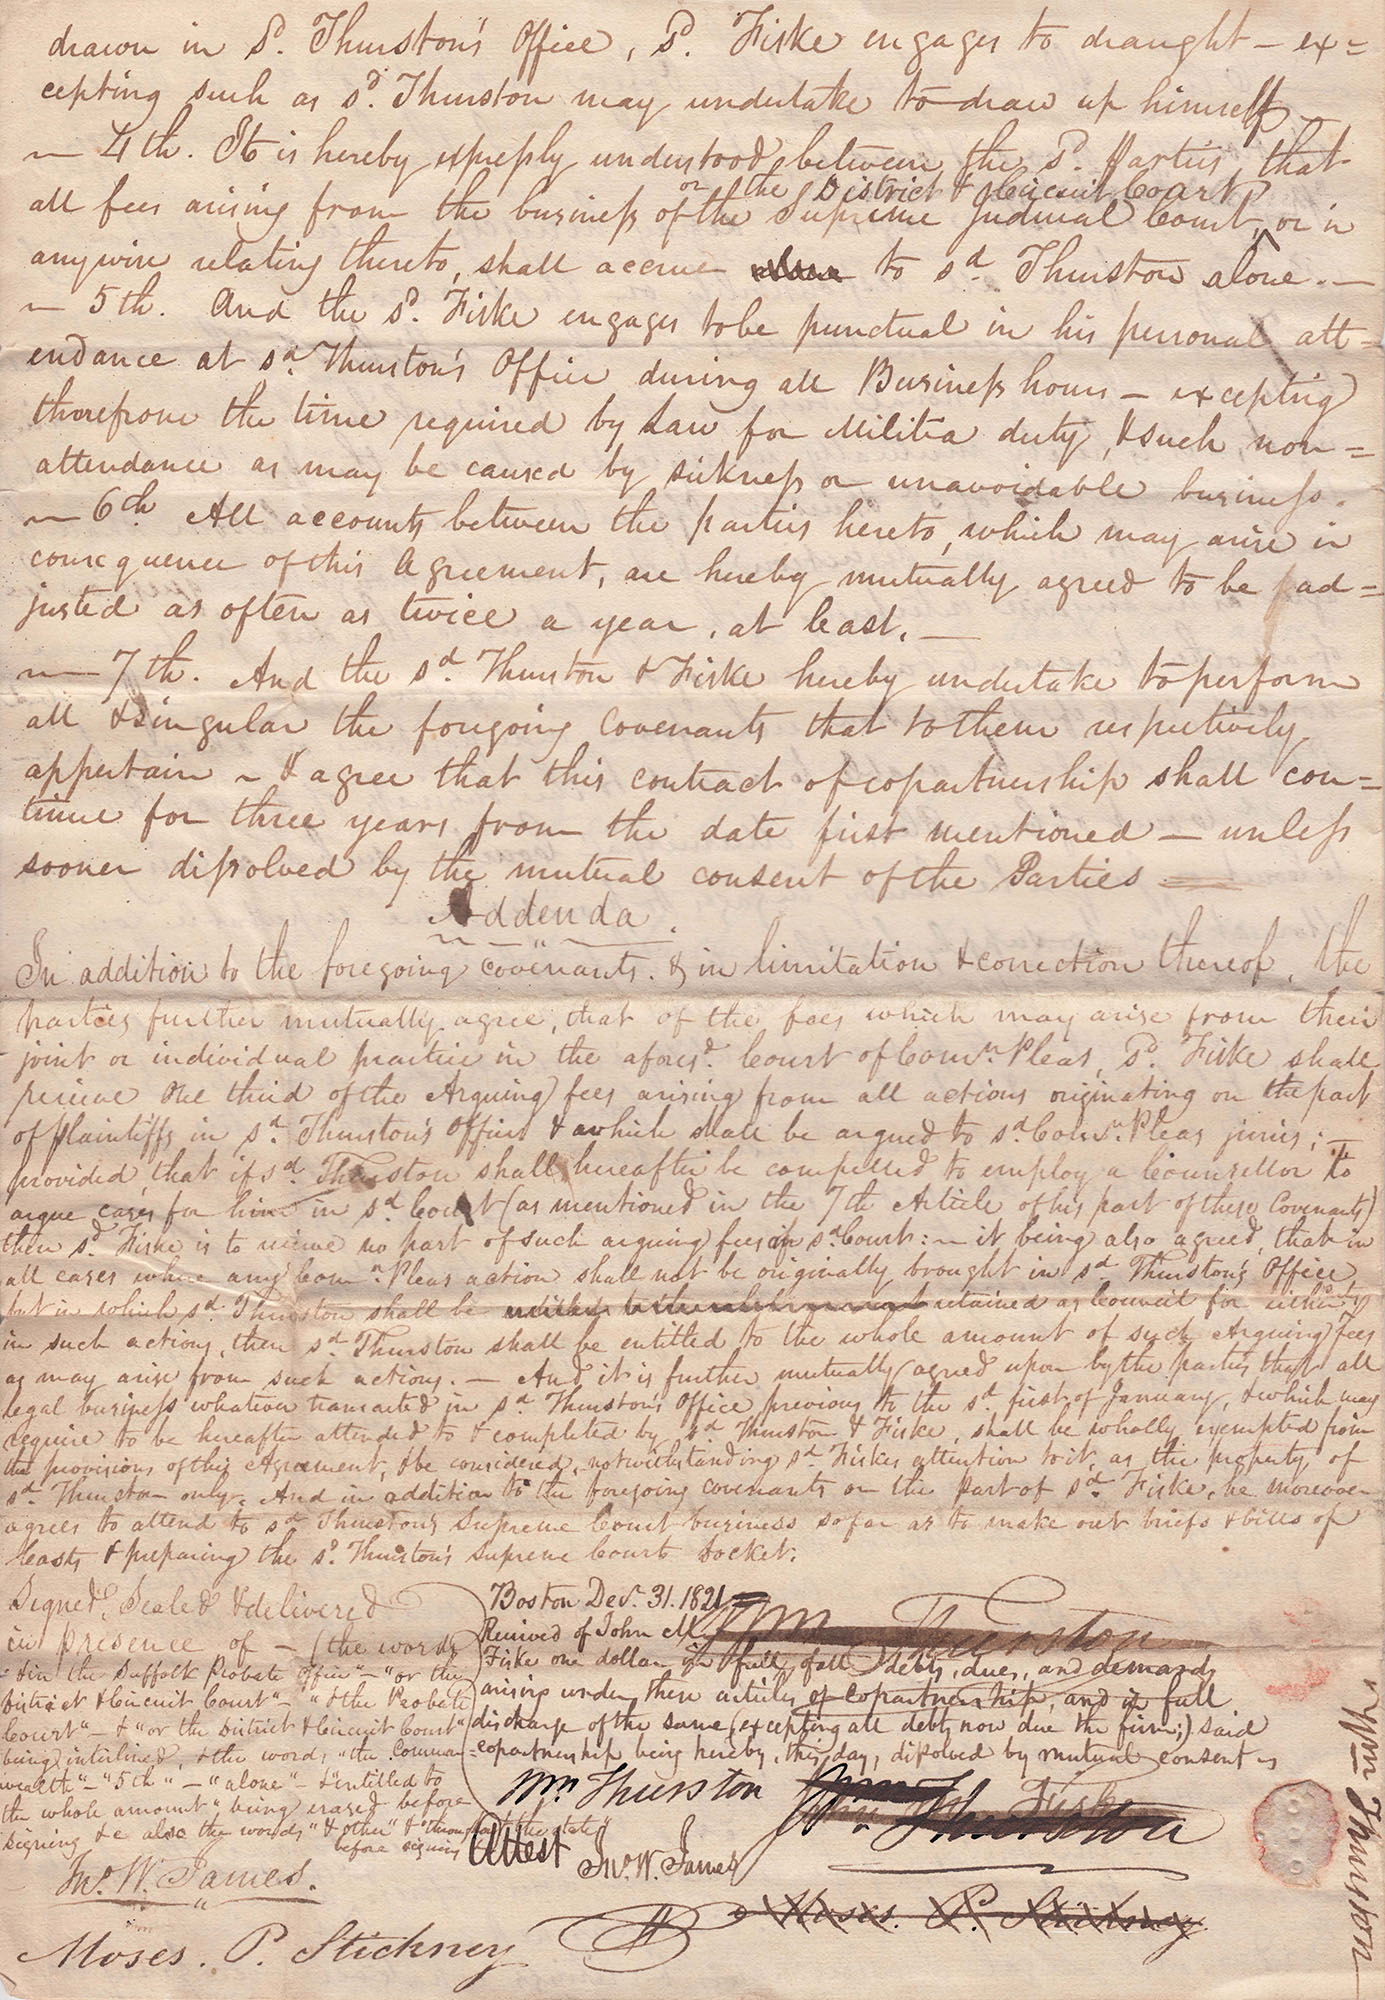 drawn in sd. Thurston's Office, sd. Fiske engages to draught – ex=
cepting such as sd. Thurston may undertake to draw up himself
— 4th. It is hereby expressly understood between the sd. Parties that
or the District & Circuit Court
all fees arising from the business of the Supreme Judicial Court, or in
anywise relating thereto, shall accrue to sd Thurston alone. —
— 5th. And the sd. Fiske engages to be punctual in his personal att=
endance at sd. Thurston's Office during all Business hours – excepting
therefrom the time required by Law for Militia duty, & such non=
attendance as may be caused by sickness or unavoidable business.
— 6th All accounts between the parties hereto, which may arise in
consequence of this Agreement, are hereby mutually agreed to be ad=
justed as often as twice a year, at least. —
— 7th. And the sd Thurston & Fiske hereby undertake to perform
all & singular the foregoing Covenants that to them respectively
appertain ~ & agree that this contract of copartnership shall con=
tinue for three years from the date first mentioned – unless
sooner dissolved by the mutual consent of the Parties
Addenda.
In addition to the foregoing covenants. & in limitation & correction thereof, the
parties further mutually agree, that of the fees which may arise from their
joint or individual practice in the aforesd. Court of Comn. Pleas, sd. Fiske shall
receive one third of the Arguing fees arising from all actions originating on the part
of plaintiffs in sd. Thurston's Office & which shall be argued to sd. Comn. Pleas juries; —
provided, that if sd. Thurston shall hereafter be compelled to employ a Counsellor to
argue cases for him in sd. Court (as mentioned in the 7th Article of his part of these Covenants)
then sd. Fiske is to receive no part of such arguing fees in sd. Court: ~ it being also agreed, that in
all cases where any Comn. Pleas action shall not be originally brought in sd. Thurston's Office,
but in which sd. Thurston shall be retained as Council for either Py
in such actions, then sd. Thurston shall be entitled to the whole amount of such Arguing fees
as may arise from such actions. — And it is further mutually agreed upon by the parties that all
legal business whatever transacted in sd. Thurston's Office previous to the sd. first of January, & which may
require to be hereafter attended to & completed by sd Thurston & Fiske, shall be wholly exempted from
the provisions of this Agreement, & be considered, notwithstanding sd. Fiskes attention to it, as the property of
sd. Thurston only. And in addition to the foregoing covenants on the part of sd. Fiske, he moreover
agrees to attend to sd. Thurston's Supreme Court business so far as to make out briefs & bills of
Costs & preparing the sd. Thurston's Supreme Court Docket.
Signed, Sealed & delivered
in presence of – (the words
"& in the Suffolk Probate office" – "or the
District & Circuit Court" – "& the Probate
Court" – & "or the District & Circuit Court"
being interlined, & the words "the Common=
wealth" – "5th" – "alone" – & "entitled to
the whole amount" being erased before
signing &c also the words "& other" & "throughout the state"
before signing
Jno. W. James.
Moses. P. Stickney
Boston Dec. 31. 1821
Received of John M.
Fiske one dollar in full of all debts, dues, and demands
arising under these articles of copartnership, and in full
discharge of the same (excepting all debts now due the firm;) said
copartnership being hereby, this day, dissolved by mutual consent
Wm Thurston
Attest Jno. W. James
Wm Thurston
Fiske
Wm. Thurston
Moses. P. Stickney
Wm Thurston